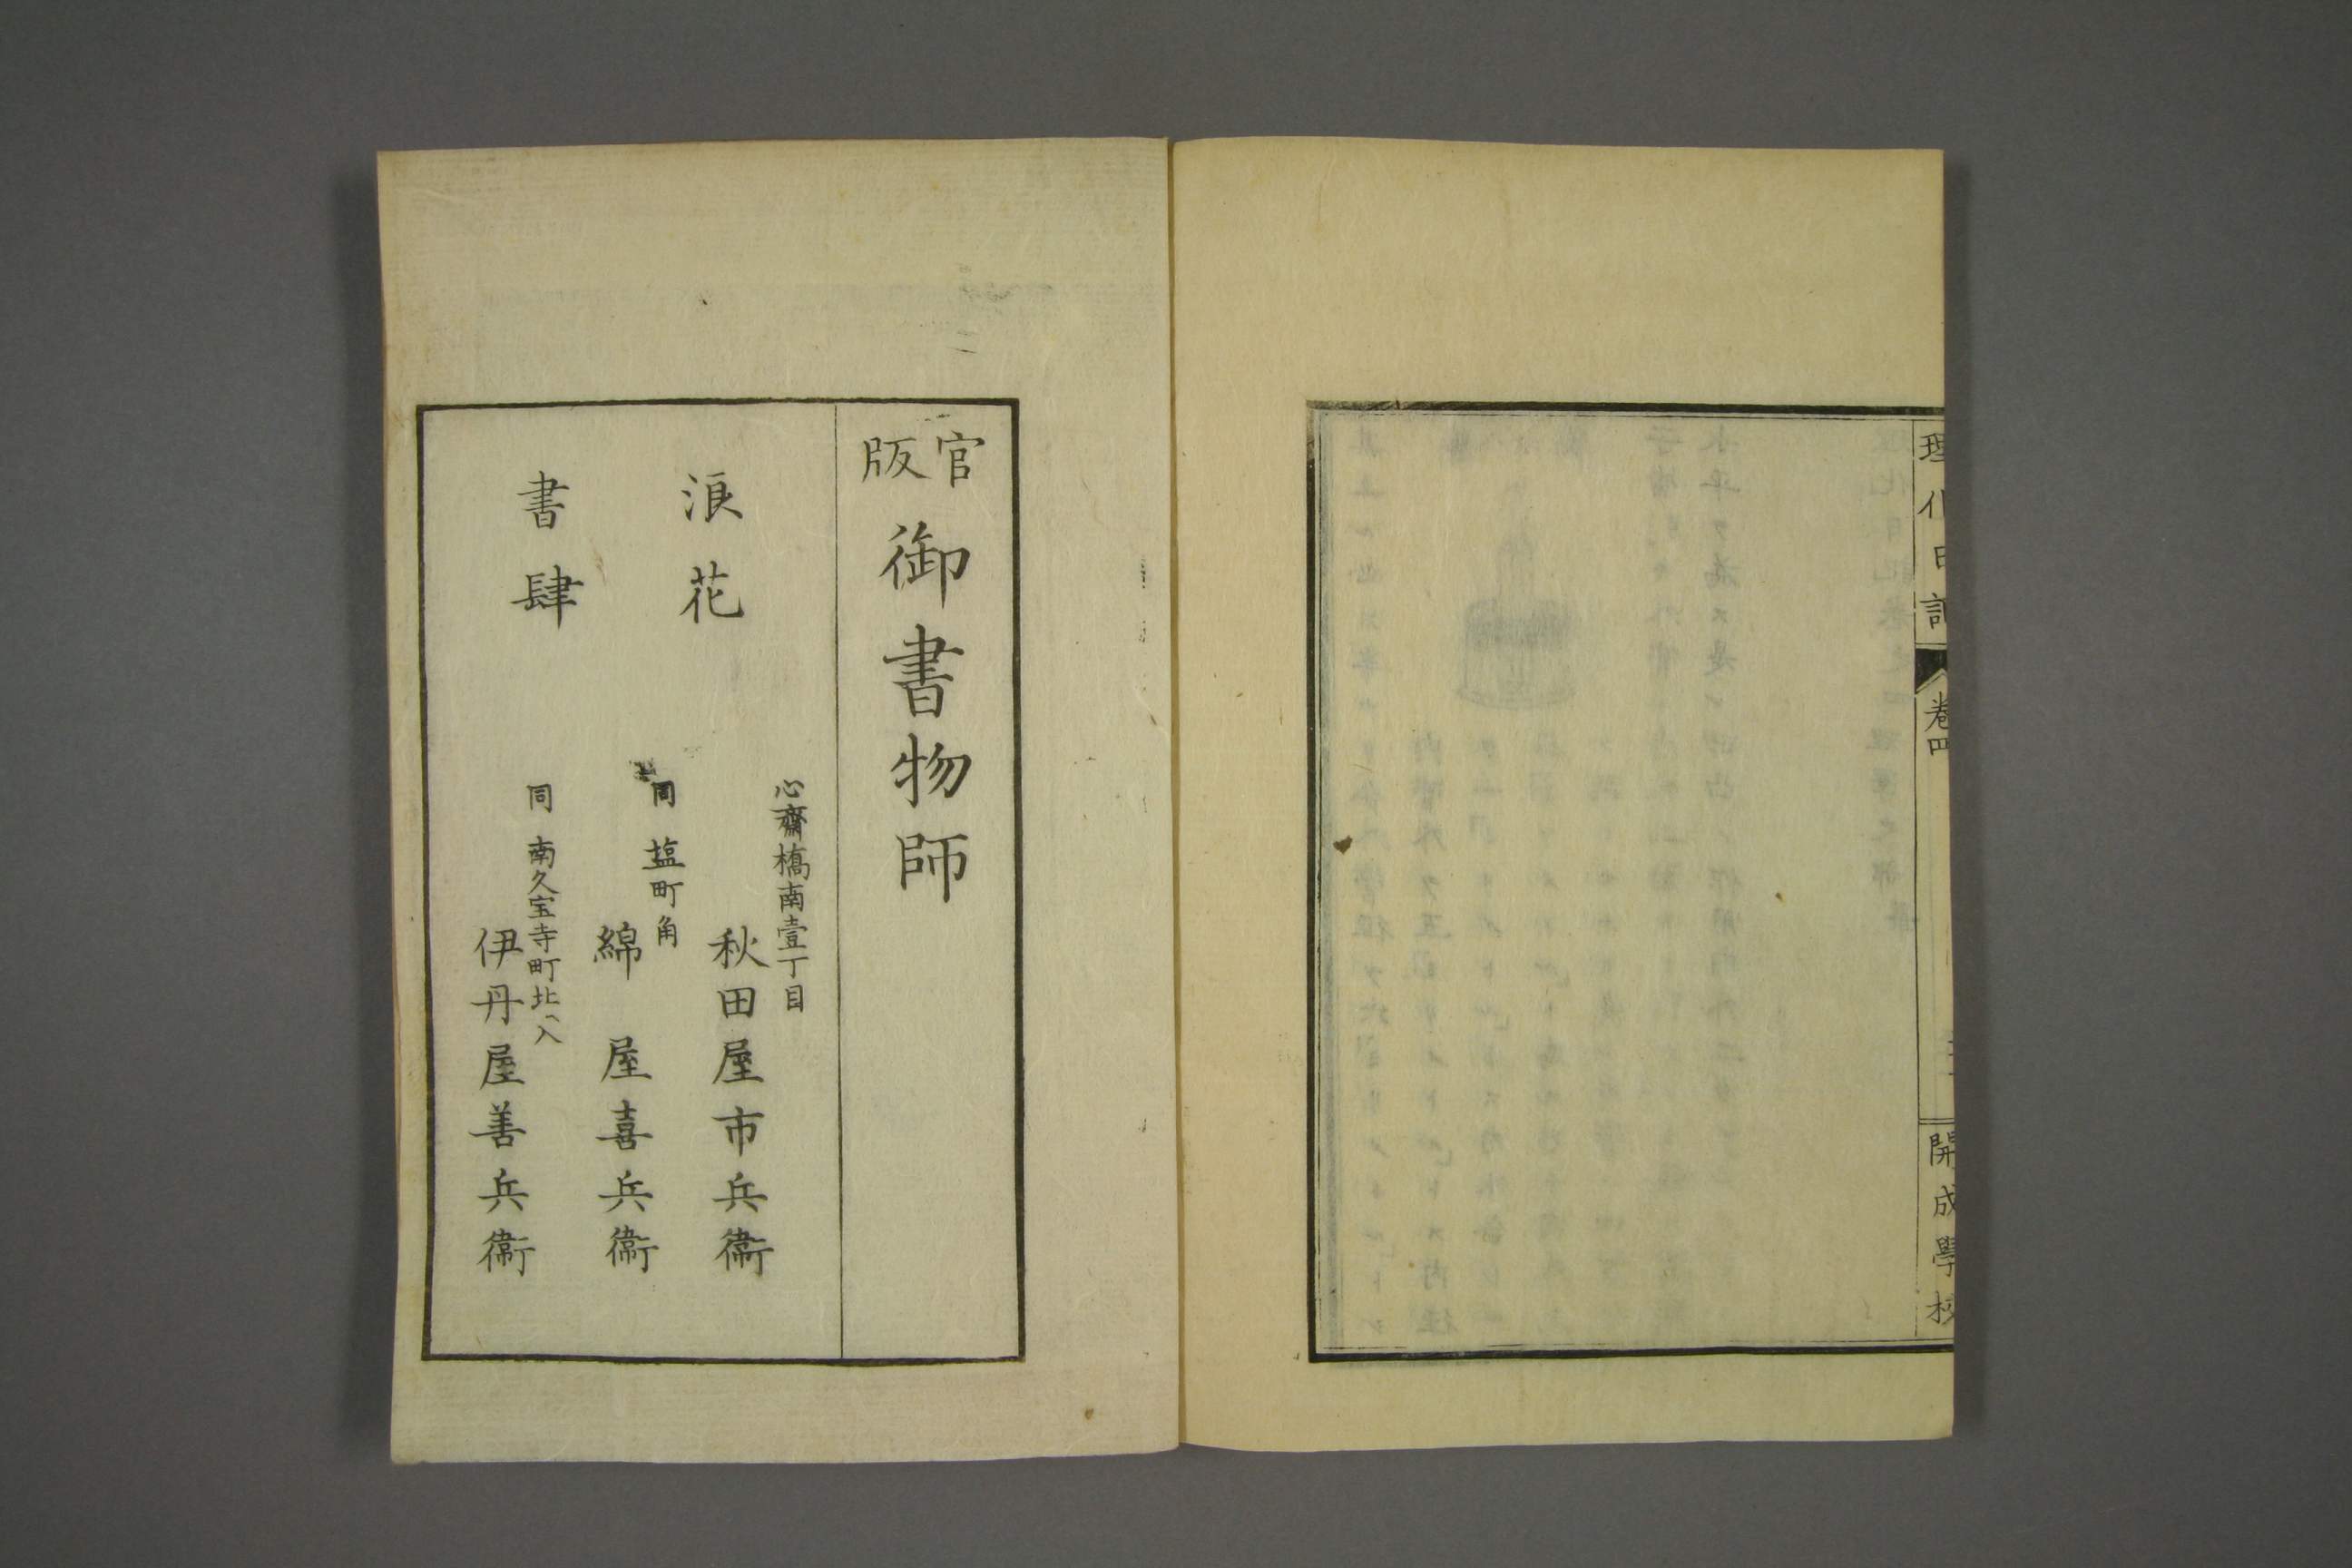 理化日記
巻四
開成學校
官版
御書物師
浪花
書肆
心齋橋南壹丁目
秋田屋市兵衞
同 塩町角
綿屋喜兵衞
同 南久宝寺町北ヘ入
伊丹屋善兵衞